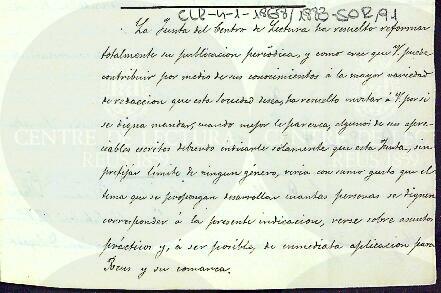 CLR-4-1-1868/1873-SOR/91
La Junta del Centro de Lectura ha resuelto reformar
totalmente su publicacion periódica, y como cree que V. puede
contribuir por medio de sus conocimientos á la mayor variedad
de redaccion que esta Sociedad desea, ha resuelto invitar á V. por si
se digna mandar, cuando mejor le parezca, algunos de sus apre-
ciables escritos debiendo indicarle solamente que esta Junta, sin
prefijar límite de ningun género, veria con sumo gusto que el
tema que se propongan desarrollar cuantas personas se dignen
corresponder á la presente indicacion, verse sobre asuntos
prácticos y, á ser posible, de inmediata aplicacion para
Reus y su comarca.
CENTRE DE LECTURA
REUS